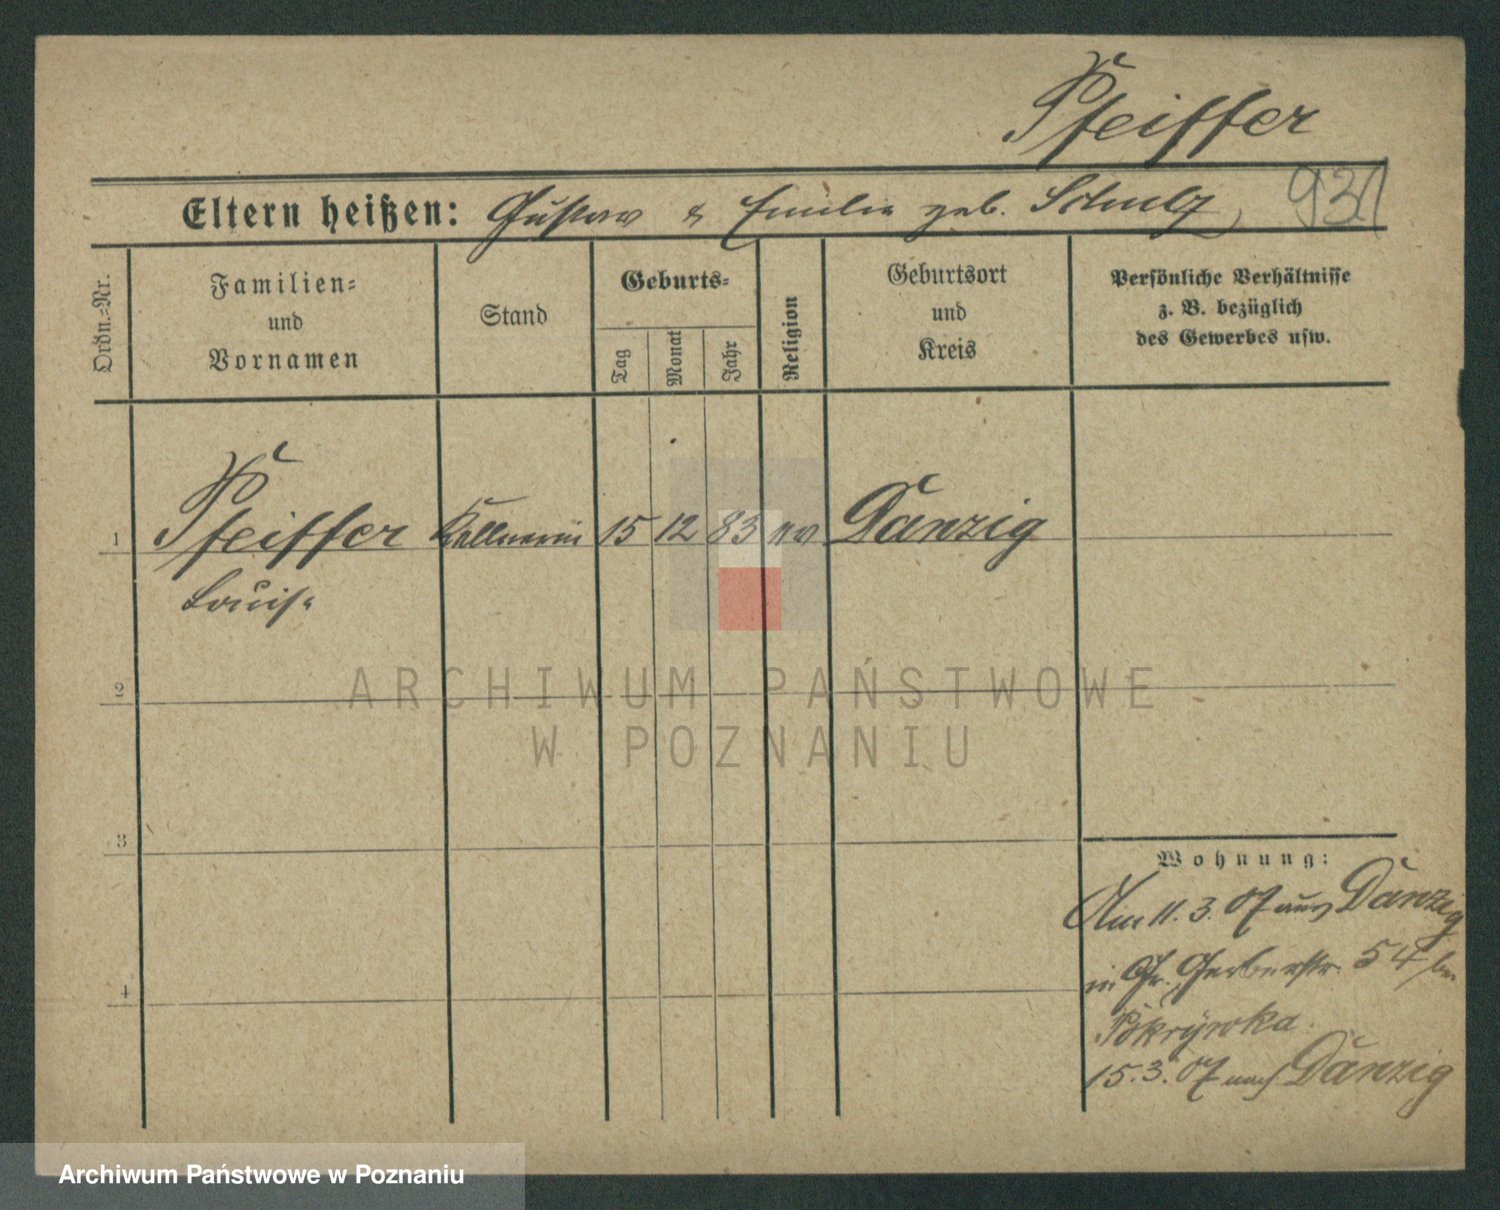 Pfeiffer
931
Eltern heißen: Gustav & Emilie geb. Schulz
Ordn.-Nr.
Familien- und Vornamen
Stand
Geburts-
Tag
Monat
Jahr
Religion
Geburtsort und Kreis
Persönliche Verhältnisse
z. B. bezüglich
des Gewerbes usw.
1 Pfeiffer Kellnerin 15 12 83 ev Danzig
Louise
2
3
4
Wohnung:
Am 11. 3. 07 aus Danzig
in Gr. Gerberstr. 54 bei
Pokrywka.
15. 3. 07 nach Danzig
ARCHIWUM PAŃSTWOWE
W POZNANIU
Archiwum Państwowe w Poznaniu